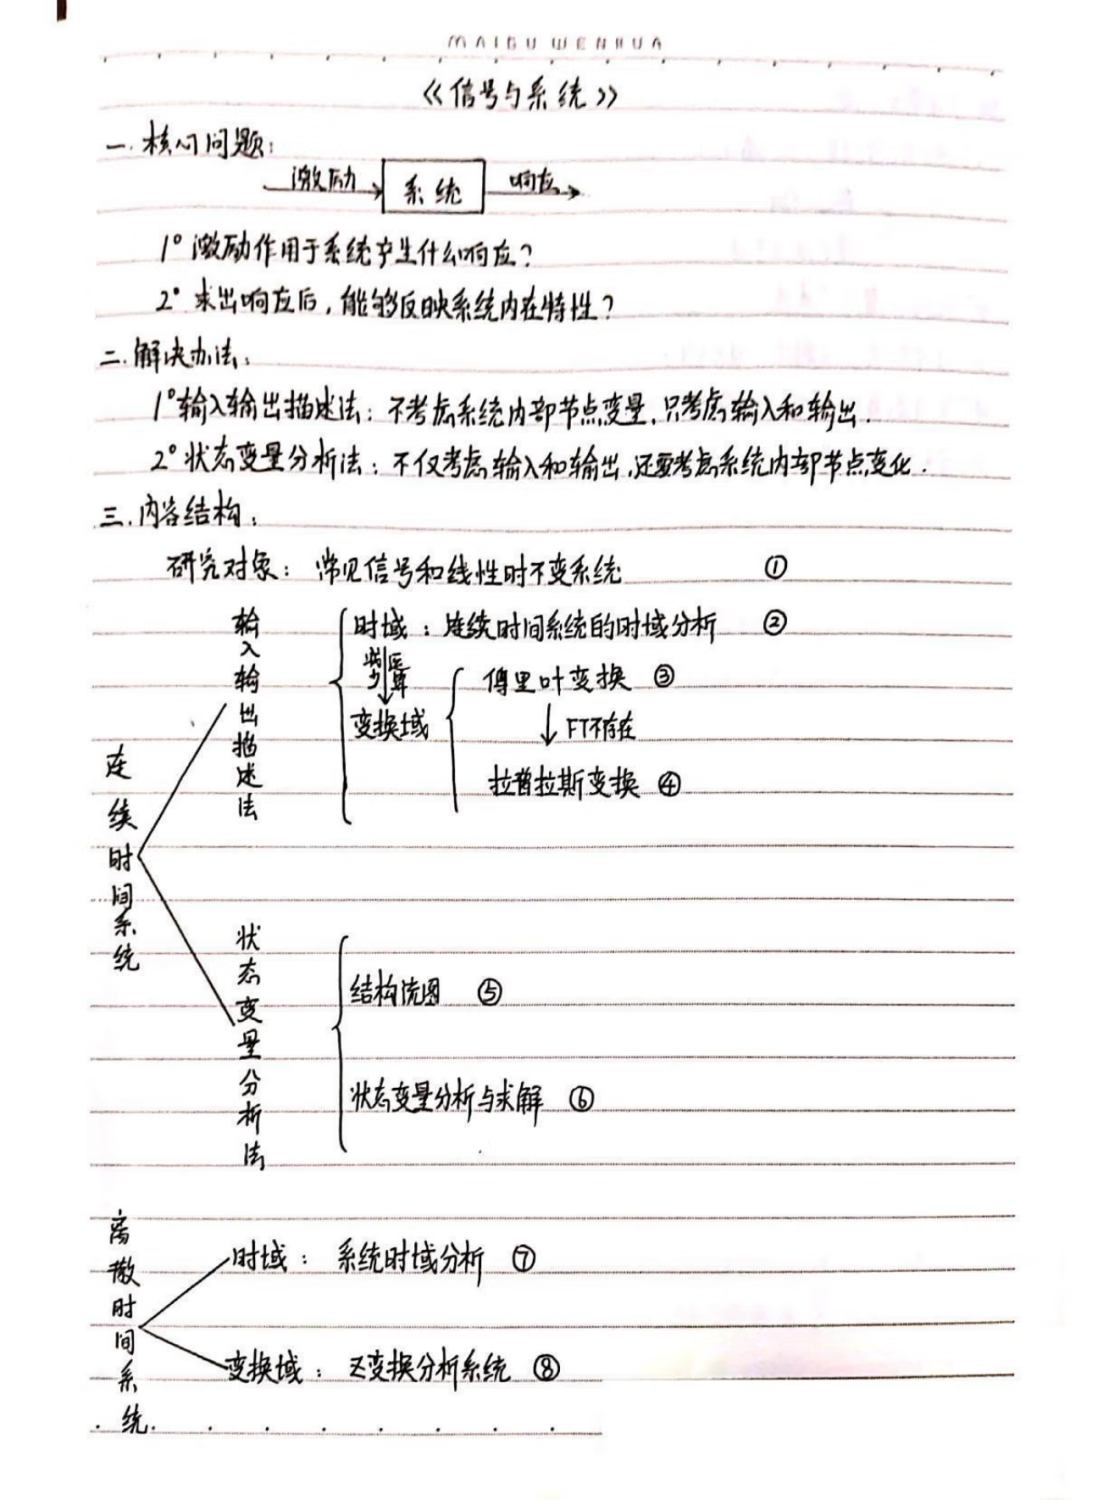 MAIGU WENHUA
《信号与系统》
一.核心问题:
激励 系统 响应
1° 激励作用于系统产生什么响应?
2° 求出响应后,能够反映系统内在特性?
二.解决办法:
1° 输入输出描述法: 不考虑系统内部节点变量,只考虑输入和输出.
2° 状态变量分析法: 不仅考虑输入和输出,还要考虑系统内部节点变化.
三.内容结构:
研究对象: 常见信号和线性时不变系统 ①
连续时间系统
输入输出描述法
时域: 连续时间系统的时域分析 ②
减少运算
变换域
傅里叶变换 ③
FT不存在
拉普拉斯变换 ④
状态变量分析法
结构流图 ⑤
状态变量分析与求解 ⑥
离散时间系统
时域: 系统时域分析 ⑦
变换域: Z变换分析系统 ⑧